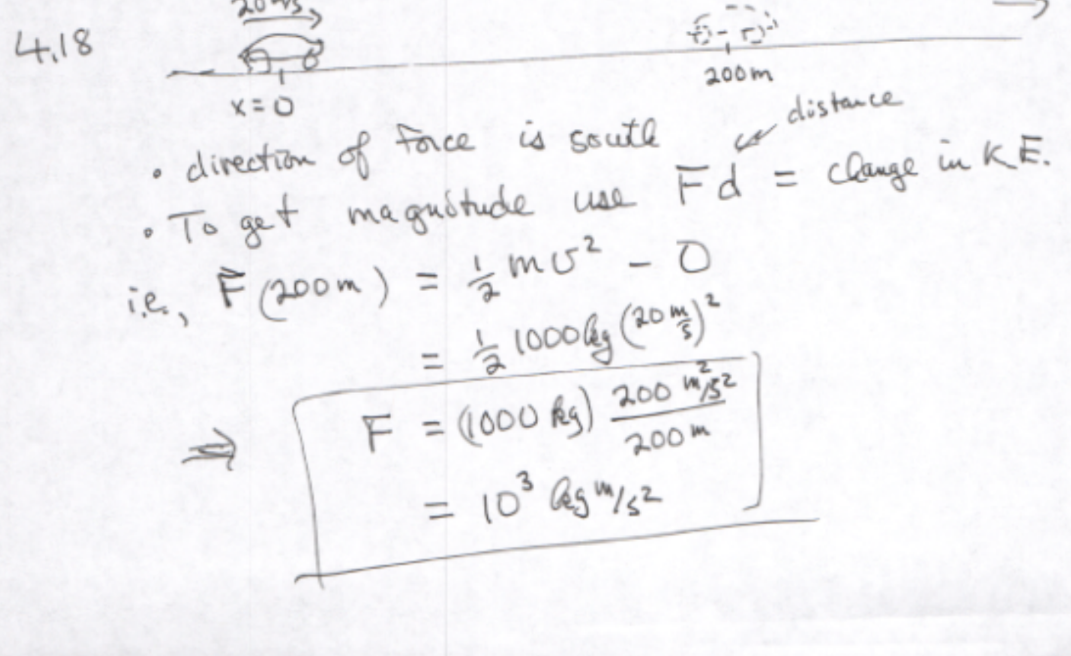 20 m/s
4.18
200m
x=0
distance
• direction of force is south
• To get magnitude use Fd = change in KE.
i.e., F (200m) = 1/2 mv² - 0
= 1/2 1000kg (20 m/s)²
⇒ F = (1000 kg) 200 m²/s² / 200 m
= 10³ kg m/s²